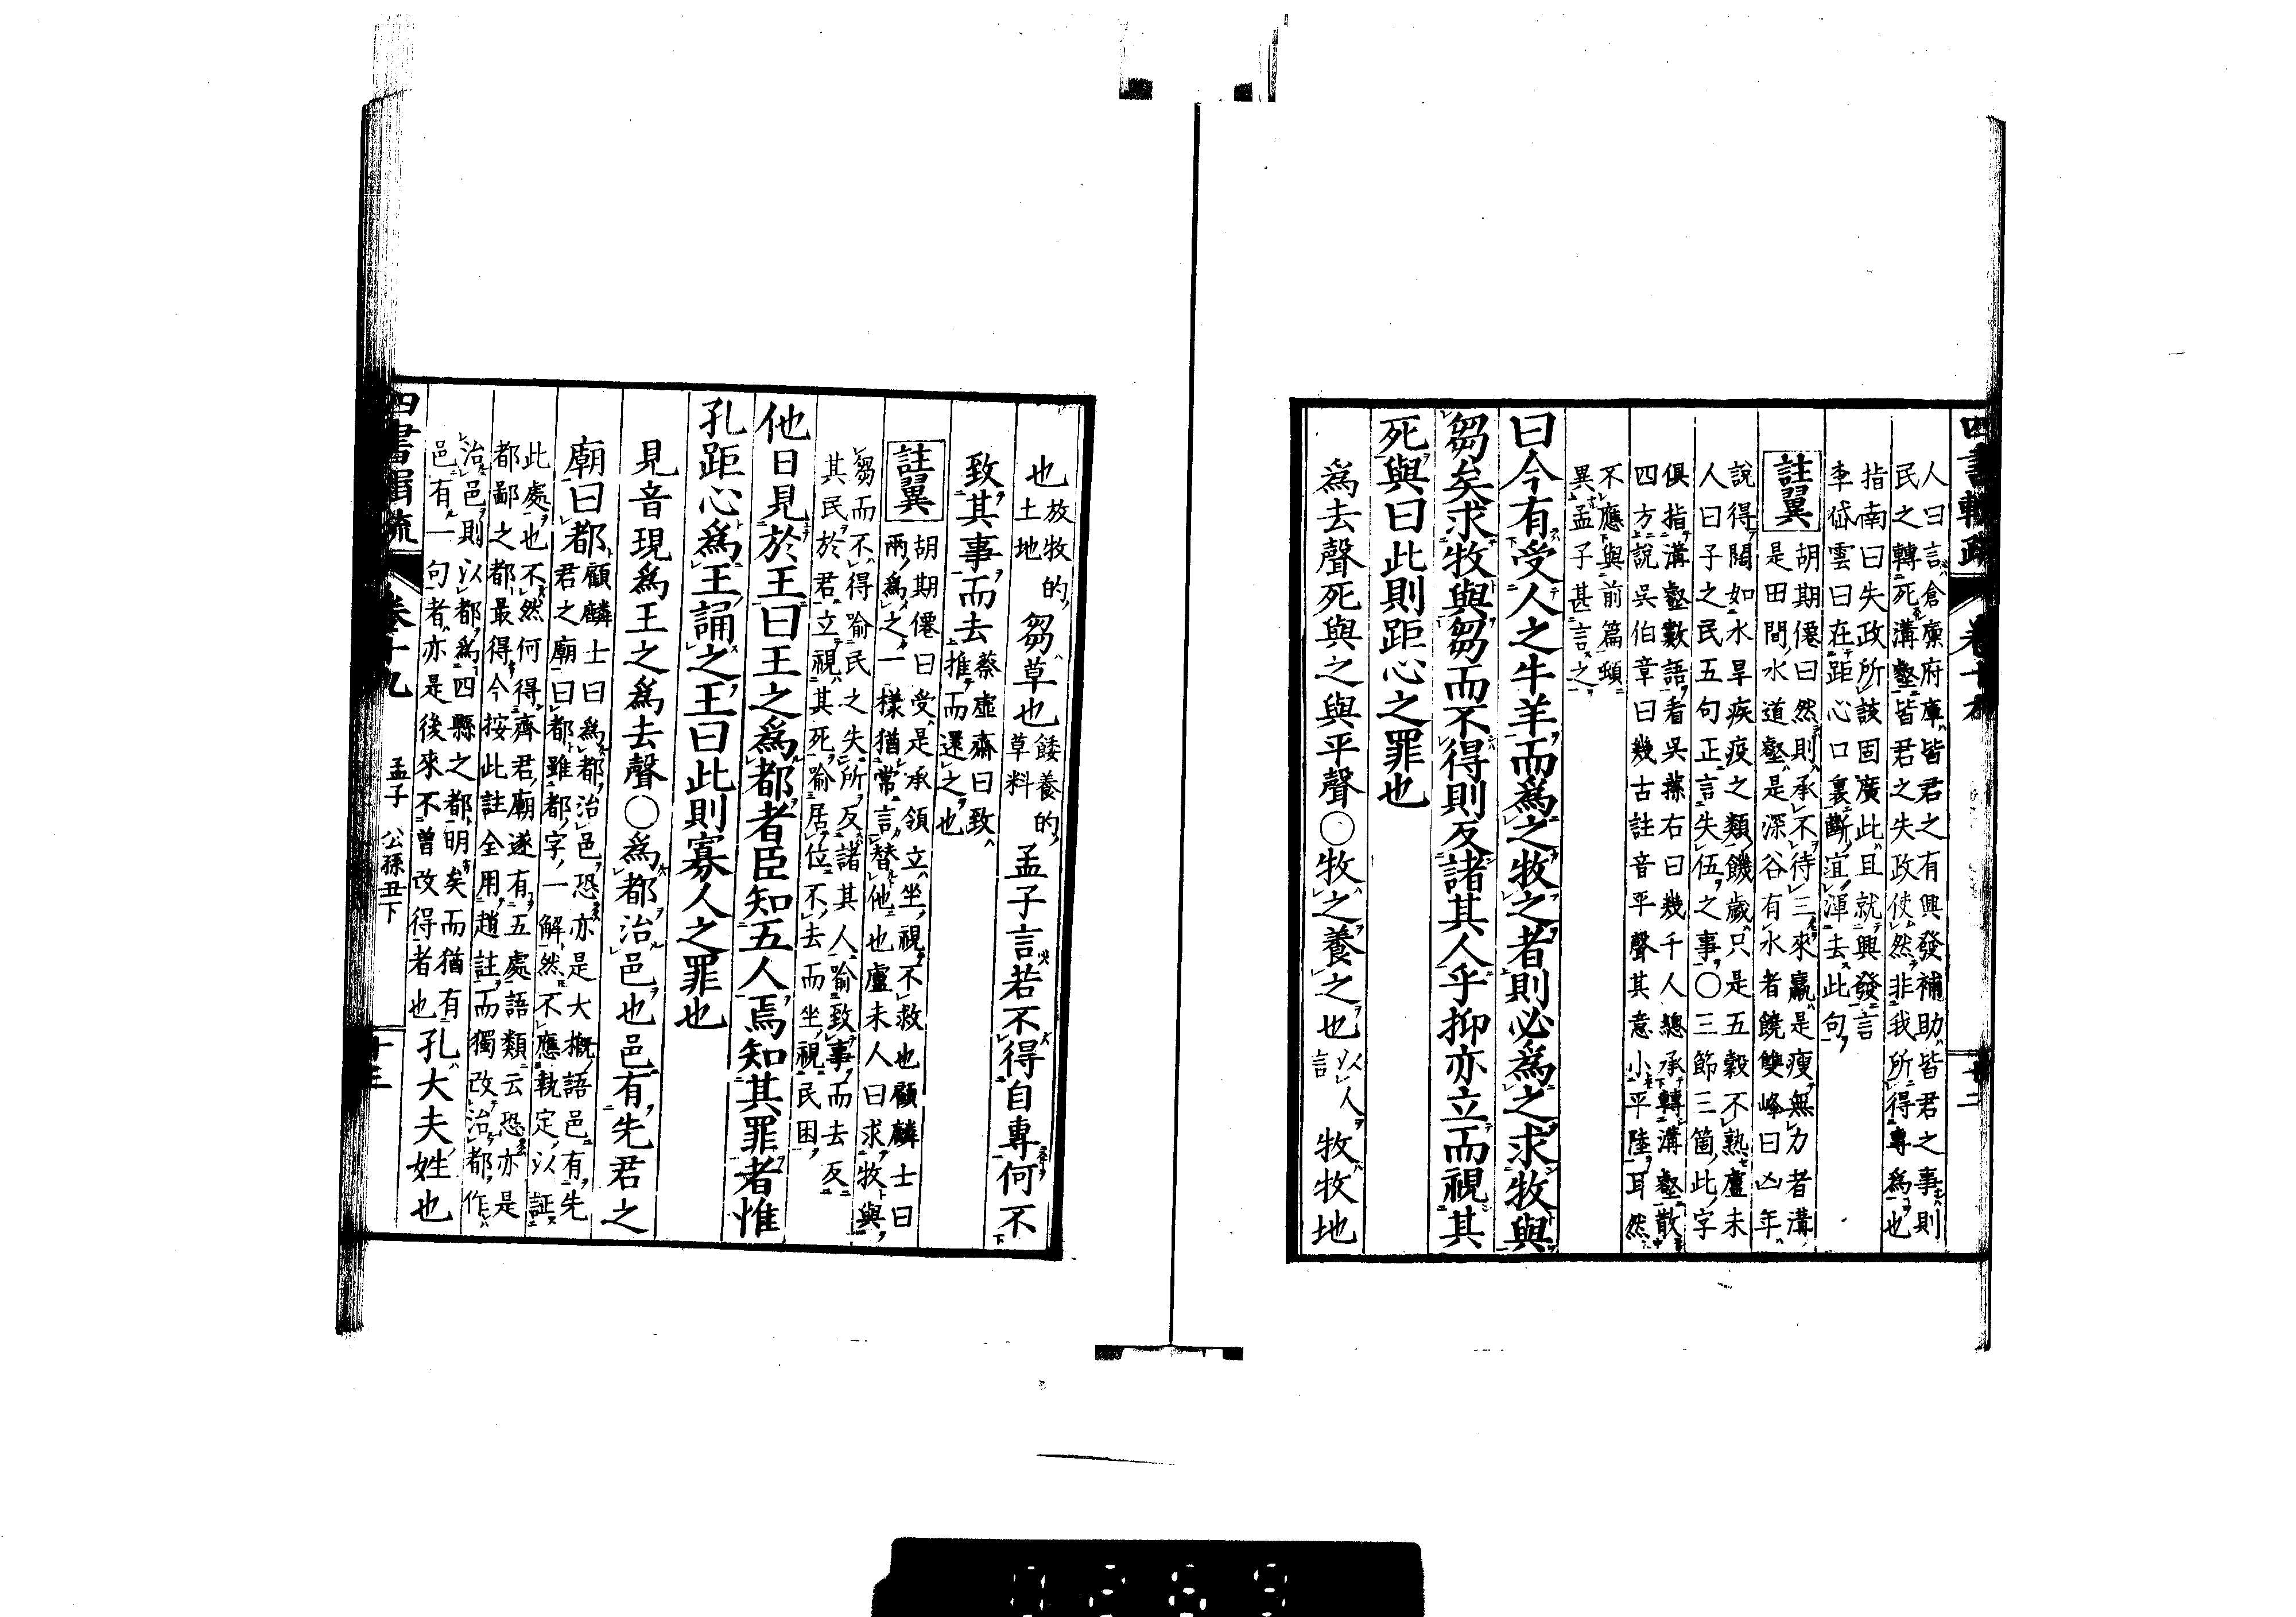 四書輯疏 卷十九 十二
人曰言倉廩府庫皆君之有興發補助皆君之事則
民之轉死溝壑皆君之失政使然非我所得專爲也
指南曰失政所該固廣此且就興發言
李岱雲曰在距心口裏斷宜渾去此句
註翼
胡期僊曰然則承不待三來羸是瘦無力者溝
是田間水道壑是深谷有水者饒雙峰曰凶年
說得闊如水旱疾疫之類饑歲只是五穀不熟盧未
人曰子之民五句正言失伍之事○三節三箇此字
俱指溝壑數語看吳蓀右曰幾千人總承轉溝壑散
四方說吳伯章曰幾古註音平聲其意小平陸耳然
不應與前篇頓
異孟子甚言之
曰今有受人之牛羊而爲之牧之者則必爲之求牧與
芻矣求牧與芻而不得則反諸其人乎抑亦立而視其
死與曰此則距心之罪也
爲去聲死與之與平聲○牧之養之也
以人
言
牧牧地
也
放牧的
土地
芻草也
餧養的
草料
孟子言若不得自專何不
致其事而去
蔡虛齋曰致
推而還之也
註翼
胡期僊曰受是承領立坐視不救也顧麟士曰
兩爲之一樣猶常言替他也盧未人曰求牧與
芻而不得喻民之失所反諸其人喻致事而去反
其民於君立視其死喻居位不去而坐視民困
他日見於王曰王之爲都者臣知五人焉知其罪者惟
孔距心爲王誦之王曰此則寡人之罪也
見音現爲王之爲去聲○爲都治邑也邑有先君之
廟曰都
顧麟士曰爲都治邑恐亦是大概語邑有先
君之廟曰都雖都字一解然不應執定以証
此處也不然何得齊君廟遂有五處語類云恐亦是
都鄙之都最得今按此註全用趙註而獨改治都作
治邑則以都爲四縣之都明矣而猶有
邑有一句者亦是後來不曾改得者也
孔大夫姓也
四書輯疏 卷十九 孟子 公孫丑下 十三